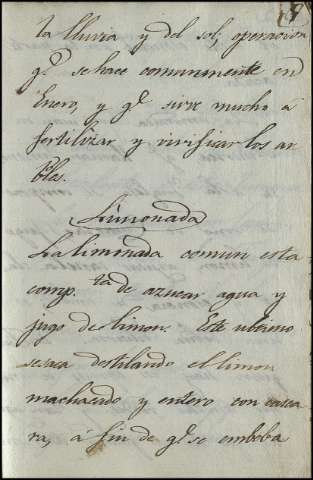 la lluvia y del sol; operacion
qe. se hace comunmente en
Enero, y qe. sirve mucho á
fertilizar y vivificar los ar
bles.
Limonada
La liminada comun esta
comp.ta de azucar agua y
jugo de limon. Este
se saca destilando el limon
machacado y entero con casca
ra, á fin de qe. se embeba